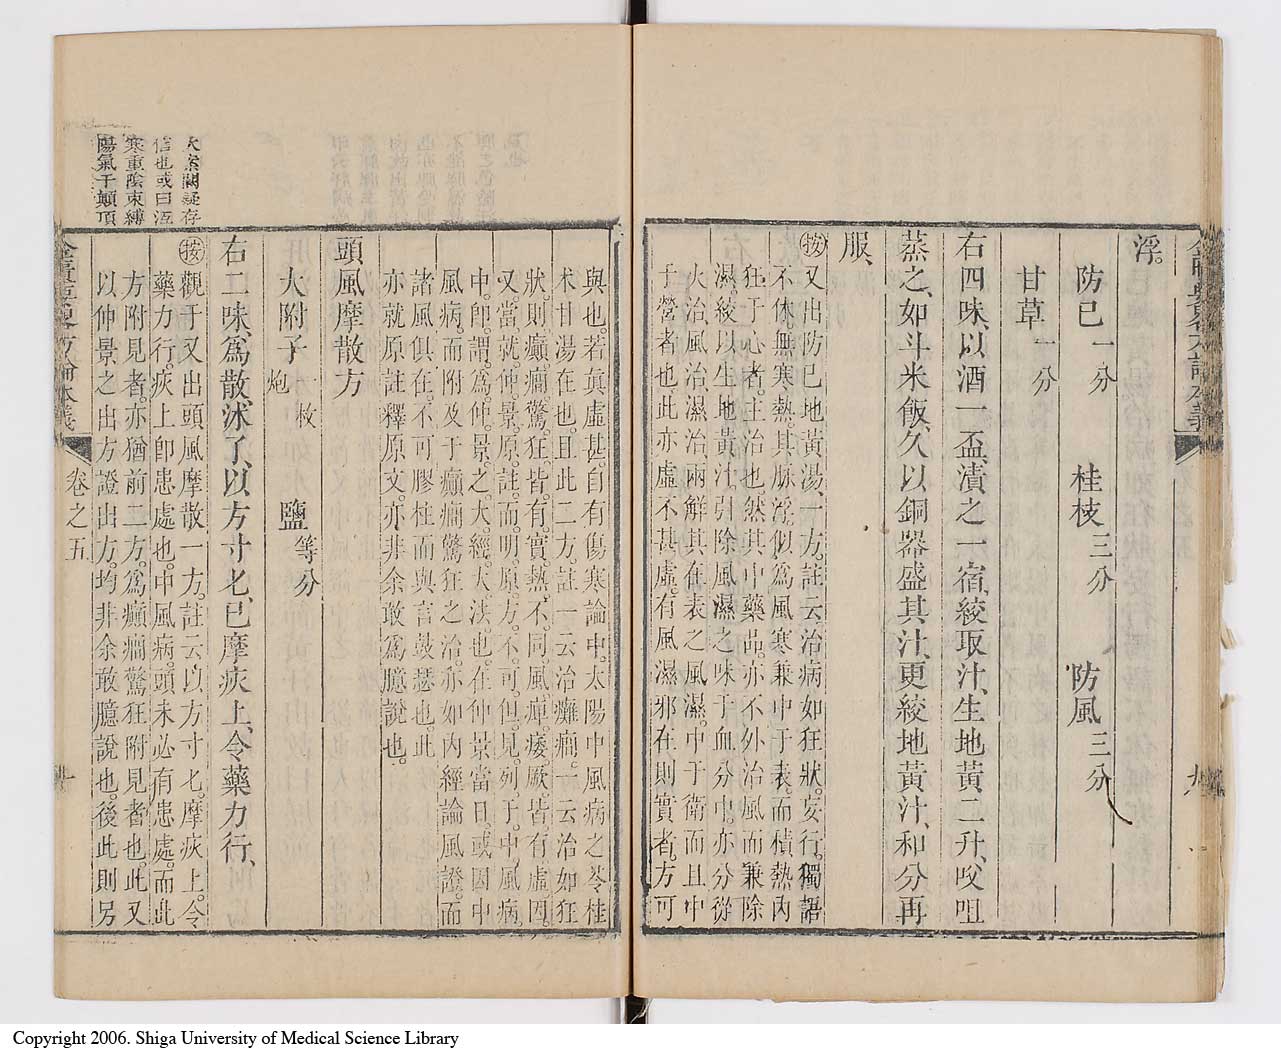 浮。
防己一分　桂枝三分　防風三分
甘草一分
右四味、以酒一盃、漬之一宿、絞取汁、生地黃二升、㕮咀
蒸之、如斗米飯久、以銅器盛其汁、更絞地黃汁、和分再
服、
按又出防己地黃湯、一方。註云。治病如狂狀。妄行。獨語
不休。無寒熱。其脉浮。似為風寒兼中于表。而積熱內
狂于心者。主治也。然其中藥品。亦不外治風而兼除
濕。絞以生地黃汁。引除風濕之味于血分中。亦分從
火治風治濕治。兩解其在表之風濕。中于衛而且中
于營者也。此亦虛不甚虛。有風濕邪在則實者。方可
與也。若眞虛甚。自有傷寒論中。太陽中風病之苓桂
术甘湯在也。且此二方。註一云治癱癎。一云治如狂
狀。則癲。癎。驚。狂。皆。有。實。熱。不。同。風。痺。痿。厥。皆。有。虛。因。
又。當。就。仲。景。原。註。而。明。原。方。不。可。但。見。列。于。中。風。病。
中。卽。謂。爲。仲。景。之。大。經。大。法。也。在仲景當日。或因中
風病。而附及于癲癎驚狂之治。亦如內經論風證。而
諸風俱在。不可膠柱而與言鼓瑟也。此
亦就原註釋原文。亦非余敢爲臆說也。
頭風摩散方
大附子一枚炮　鹽等分
右二味、爲散、沐了、以方寸匕、已摩疢上、令藥力行、
按觀于又出頭風摩散一方。註云以方寸匕。摩疢上。令
藥力行。疢上卽患處也。中風病。頭未必有患處。而此
方附見者。亦猶前二方。爲癲癎驚狂附見者也。此又
以仲景之出方證出方。均非余敢臆說也。後此則另
大案闕疑存
信也或曰沍
寒重陰束縛
陽氣于顚頂
卷之五
Copyright 2006. Shiga University of Medical Science Library